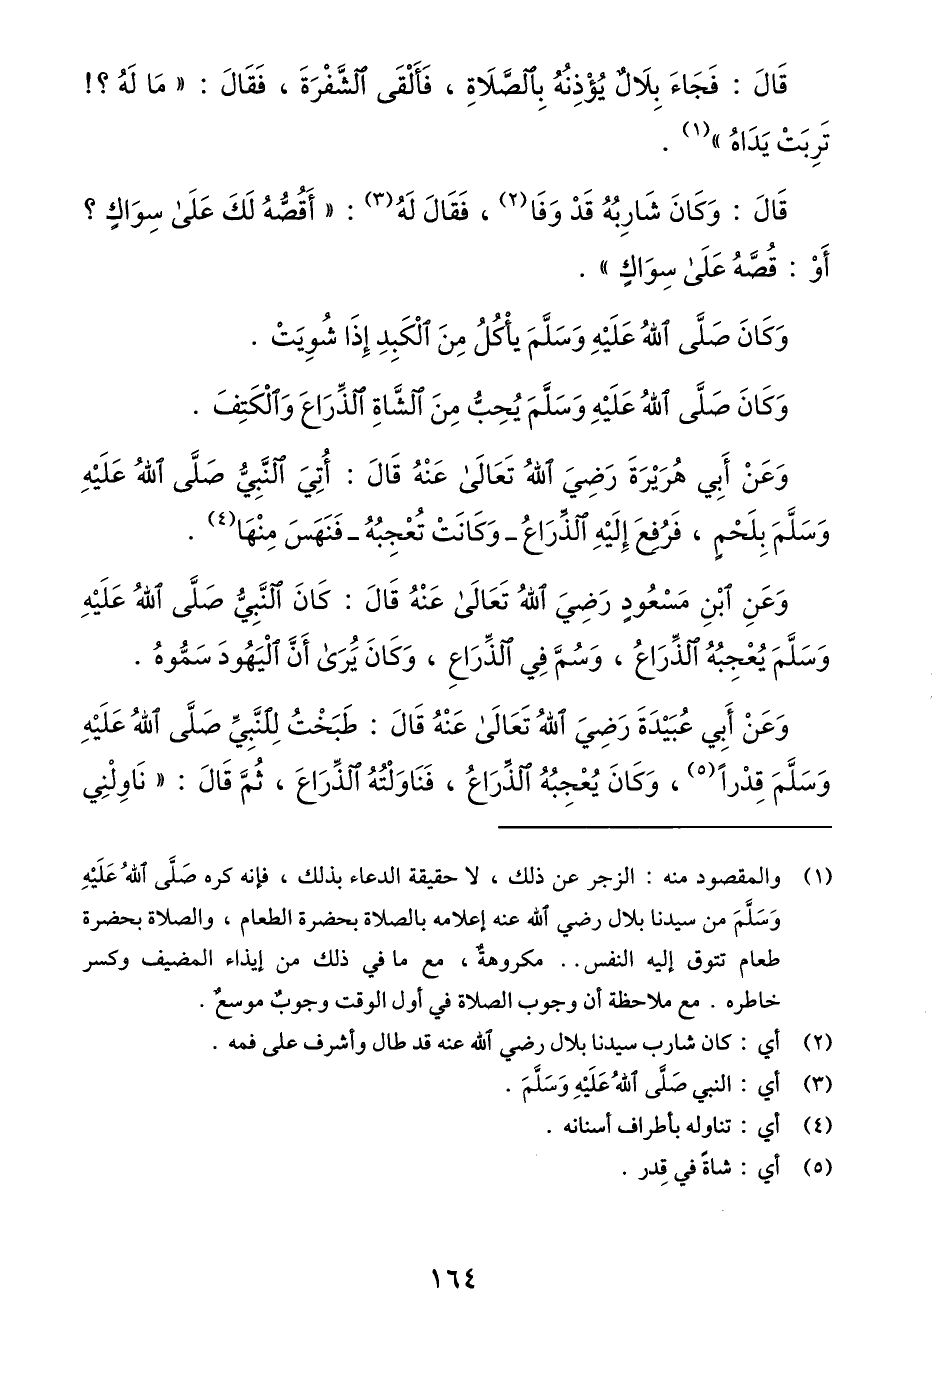 قَالَ : فَجَاءَ بِلَالٌ يُؤْذِنُهُ بِٱلصَّلَاةِ ، فَأَلْقَى ٱلشَّفْرَةَ ، فَقَالَ : « مَا لَهُ ؟!
تَرِبَتْ يَدَاهُ »(١) .
قَالَ : وَكَانَ شَارِبُهُ قَدْ وَفَا(٢) ، فَقَالَ لَهُ(٣) : « أَقُصُّهُ لَكَ عَلَىٰ سِوَاكٍ ؟
أَوْ : قُصَّهُ عَلَىٰ سِوَاكٍ » .
وَكَانَ صَلَّى ٱللهُ عَلَيْهِ وَسَلَّمَ يأْكُلُ مِنَ ٱلْكَبِدِ إِذَا شُوِيَتْ .
وَكَانَ صَلَّى ٱللهُ عَلَيْهِ وَسَلَّمَ يُحِبُّ مِنَ ٱلشَّاةِ ٱلذِّرَاعَ وَٱلْكَتِفَ .
وَعَنْ أَبِي هُرَيْرَةَ رَضِيَ ٱللهُ تَعَالَىٰ عَنْهُ قَالَ : أُتِيَ ٱلنَّبِيُّ صَلَّى ٱللهُ عَلَيْهِ
وَسَلَّمَ بِلَحْمٍ ، فَرُفِعَ إِلَيْهِ ٱلذِّرَاعُ ـ وَكَانَتْ تُعْجِبُهُ ـ فَنَهَسَ مِنْهَا(٤) .
وَعَنِ ٱبْنِ مَسْعُودٍ رَضِيَ ٱللهُ تَعَالَىٰ عَنْهُ قَالَ : كَانَ ٱلنَّبِيُّ صَلَّى ٱللهُ عَلَيْهِ
وَسَلَّمَ يُعْجِبُهُ ٱلذِّرَاعُ ، وَسُمَّ فِي ٱلذِّرَاعِ ، وَكَانَ يُرَىٰ أَنَّ ٱلْيَهُودَ سَمُّوهُ .
وَعَنْ أَبِي عُبَيْدَةَ رَضِيَ ٱللهُ تَعَالَىٰ عَنْهُ قَالَ : طَبَخْتُ لِلنَّبِيِّ صَلَّى ٱللهُ عَلَيْهِ
وَسَلَّمَ قِدْراً(٥) ، وَكَانَ يُعْجِبُهُ ٱلذِّرَاعُ ، فَنَاوَلْتُهُ ٱلذِّرَاعَ ، ثُمَّ قَالَ : « نَاوِلْنِي
(١) والمقصود منه : الزجر عن ذلك ، لا حقيقة الدعاء بذلك ، فإنه كره صَلَّى ٱللهُ عَلَيْهِ
وَسَلَّمَ من سيدنا بلال رضي الله عنه إعلامه بالصلاة بحضرة الطعام ، والصلاة بحضرة
طعام تتوق إليه النفس .. مكروهةٌ ، مع ما في ذلك من إيذاء المضيف وكسر
خاطره . مع ملاحظة أن وجوب الصلاة في أول الوقت وجوبٌ موسعٌ .
(٢) أي : كان شارب سيدنا بلال رضي الله عنه قد طال وأشرف على فمه .
(٣) أي : النبي صَلَّى ٱللهُ عَلَيْهِ وَسَلَّمَ .
(٤) أي : تناوله بأطراف أسنانه .
(٥) أي : شاةً في قِدر .
١٦٤